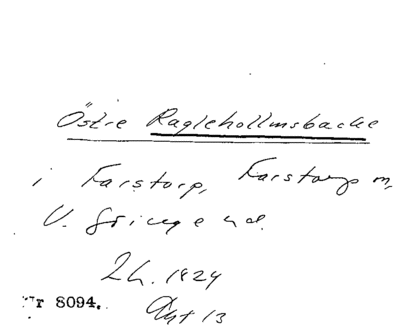 Östre Raglehollmsbacke
i Farstorp, Farstorp m,
V. Göinge hd.
Lh. 1824
Akt 13
Nr 8094.